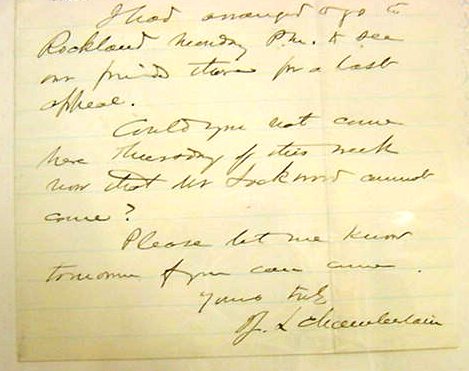 I had arranged to go to
Rockland Monday P.M. to see
our friends there for a last
appeal.
Could you not come
here Thursday of this week
now that Mr Lockwood cannot
come?
Please let me know
tomorrow if you can come.
Yours truly
J. L Chamberlain